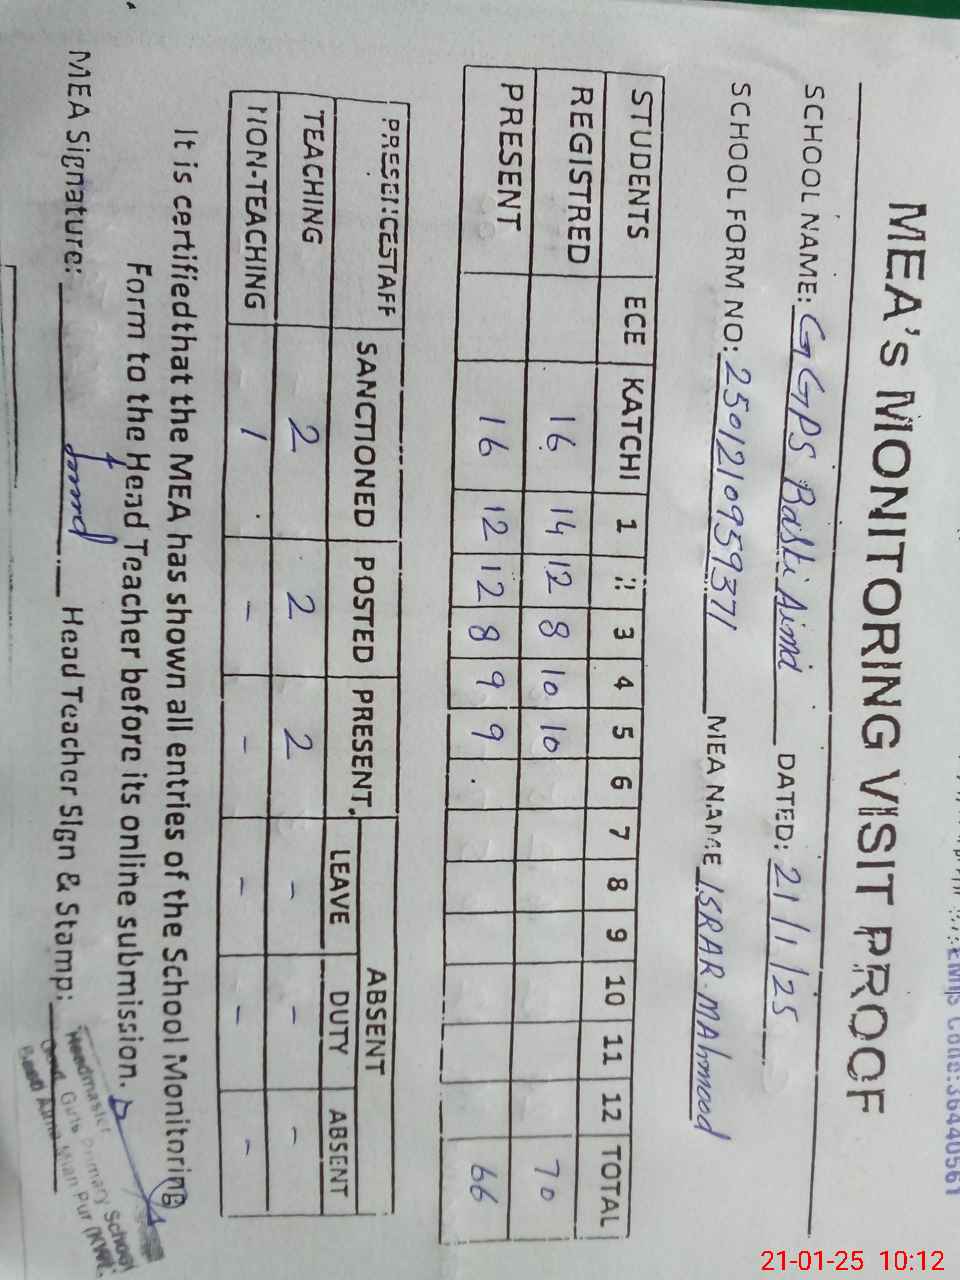 Emis Code:36440561
MEA's MONITORING VISIT PROOF
SCHOOL NAME: GGPS Basti Aimd DATED: 21/1/25
SCHOOL FORM NO: 2501210959371 MEA NAME ISRAR MAhmood
STUDENTS ECE KATCHI 1 2 3 4 5 6 7 8 9 10 11 12 TOTAL
REGISTRED 16 14 12 8 10 10 70
PRESENT 16 12 12 8 9 9 66
PRESENCESTAFF SANCTIONED POSTED PRESENT ABSENT
LEAVE DUTY ABSENT
TEACHING 2 2 2 - - -
NON-TEACHING 1 - - - - -
It is certifiedthat the MEA has shown all entries of the School Monitoring
Form to the Head Teacher before its online submission.
MEA Signature: Head Teacher Sign & Stamp:
Headmaster
Govt. Girls Primary School
Mian Pur (KWL
21-01-25 10:12